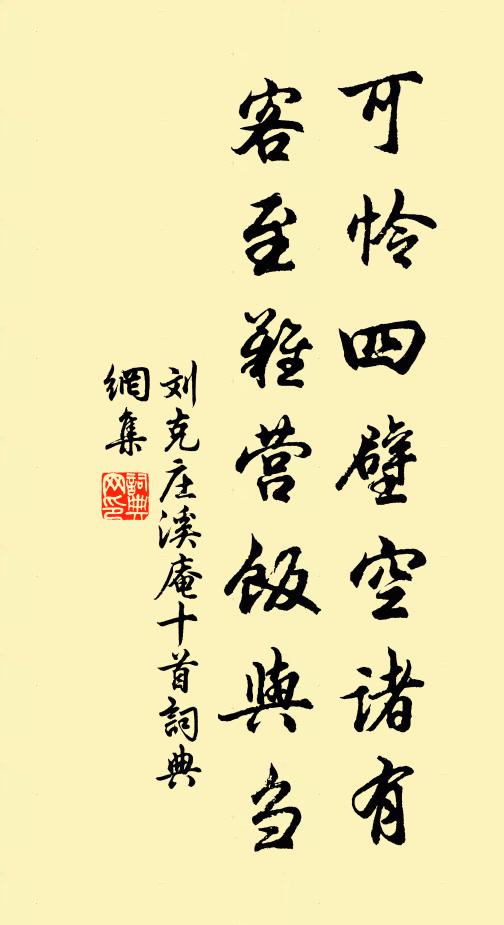 可怜四壁空诸有
客至难营饭与刍
刘克庄溪庵十首詞典
網集
詞典
网印